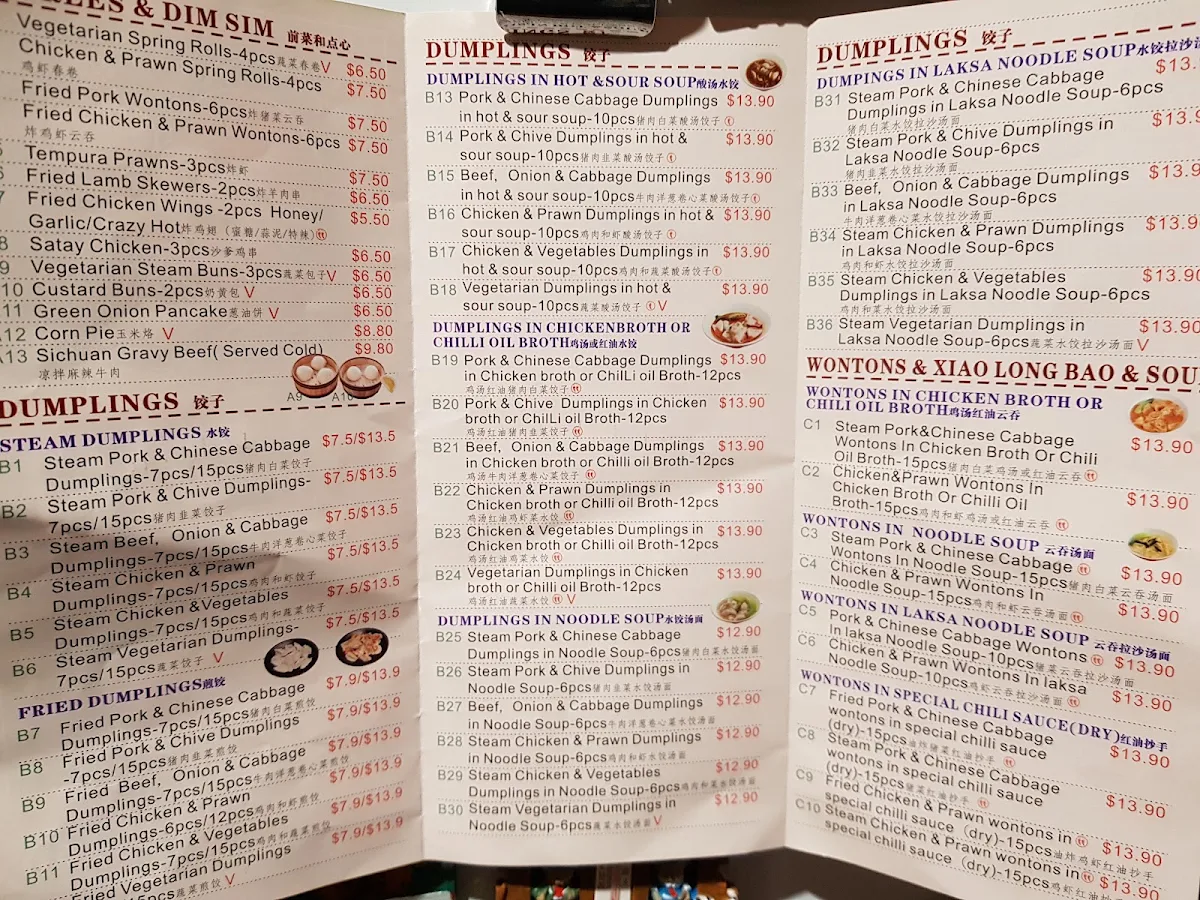 & DIM SIM 前菜和点心
Vegetarian Spring Rolls-4pcs蔬菜春卷V $6.50
Chicken & Prawn Spring Rolls-4pcs $7.50
鸡虾春卷
Fried Pork Wontons-6pcs炸猪菜云吞 $7.50
Fried Chicken & Prawn Wontons-6pcs $7.50
炸鸡虾云吞
Tempura Prawns-3pcs炸虾 $7.50
Fried Lamb Skewers-2pcs炸羊肉串 $6.50
Fried Chicken Wings -2pcs Honey/ $5.50
Garlic/Crazy Hot炸鸡翅（蜜糖/蒜泥/特辣）
Satay Chicken-3pcs沙爹鸡串 $6.50
Vegetarian Steam Buns-3pcs蔬菜包子V $6.50
10 Custard Buns-2pcs奶黄包 V $6.50
11 Green Onion Pancake葱油饼 V $6.50
12 Corn Pie玉米烙 V $8.80
13 Sichuan Gravy Beef( Served Cold) $9.80
凉拌麻辣牛肉
A9 A10
DUMPLINGS 饺子
STEAM DUMPLINGS 水饺
B1 Steam Pork & Chinese Cabbage $7.5/$13.5
Dumplings-7pcs/15pcs猪肉白菜饺子
B2 Steam Pork & Chive Dumplings- $7.5/$13.5
7pcs/15pcs猪肉韭菜饺子
B3 Steam Beef, Onion & Cabbage $7.5/$13.5
Dumplings-7pcs/15pcs牛肉洋葱卷心菜饺子
B4 Steam Chicken & Prawn $7.5/$13.5
Dumplings-7pcs/15pcs鸡肉和虾饺子
B5 Steam Chicken &Vegetables $7.5/$13.5
Dumplings-7pcs/15pcs鸡肉和蔬菜饺子
B6 Steam Vegetarian Dumplings- $7.5/$13.5
7pcs/15pcs蔬菜饺子 V
FRIED DUMPLINGS煎饺
B7 Fried Pork & Chinese Cabbage $7.9/$13.9
Dumplings-7pcs/15pcs猪肉白菜煎饺
B8 Fried Pork & Chive Dumplings $7.9/$13.9
-7pcs/15pcs猪肉韭菜煎饺
B9 Fried Beef, Onion & Cabbage $7.9/$13.9
Dumplings-7pcs/15pcs牛肉洋葱卷心菜煎饺
B10 Fried Chicken & Prawn $7.9/$13.9
Dumplings-6pcs/12pcs鸡肉和虾煎饺
B11 Fried Chicken & Vegetables $7.9/$13.9
Dumplings-7pcs/15pcs鸡肉和蔬菜煎饺
Fried Vegetarian Dumplings $7.9/$13.9
蔬菜煎饺 V
DUMPLINGS 饺子
DUMPLINGS IN HOT &SOUR SOUP酸汤水饺
B13 Pork & Chinese Cabbage Dumplings $13.90
in hot & sour soup-10pcs猪肉白菜酸汤饺子
B14 Pork & Chive Dumplings in hot & $13.90
sour soup-10pcs猪肉韭菜酸汤饺子
B15 Beef, Onion & Cabbage Dumplings $13.90
in hot & sour soup-10pcs牛肉洋葱卷心菜酸汤饺子
B16 Chicken & Prawn Dumplings in hot & $13.90
sour soup-10pcs鸡肉和虾酸汤饺子
B17 Chicken & Vegetables Dumplings in $13.90
hot & sour soup-10pcs鸡肉和蔬菜酸汤饺子
B18 Vegetarian Dumplings in hot & $13.90
sour soup-10pcs蔬菜酸汤饺子 V
DUMPLINGS IN CHICKENBROTH OR
CHILLI OIL BROTH鸡汤或红油水饺
B19 Pork & Chinese Cabbage Dumplings $13.90
in Chicken broth or ChilLi oil Broth-12pcs
鸡汤红油猪肉白菜饺子
B20 Pork & Chive Dumplings in Chicken $13.90
broth or ChilLi oil Broth-12pcs
鸡汤红油猪肉韭菜饺子
B21 Beef, Onion & Cabbage Dumplings $13.90
in Chicken broth or Chilli oil Broth-12pcs
鸡汤牛肉洋葱卷心菜饺子
B22 Chicken & Prawn Dumplings in $13.90
Chicken broth or Chilli oil Broth-12pcs
鸡汤红油鸡虾菜水饺
B23 Chicken & Vegetables Dumplings in $13.90
Chicken broth or Chilli oil Broth-12pcs
鸡汤红油鸡菜水饺
B24 Vegetarian Dumplings in Chicken $13.90
broth or Chilli oil Broth-12pcs
鸡汤红油蔬菜水饺 V
DUMPLINGS IN NOODLE SOUP水饺汤面
B25 Steam Pork & Chinese Cabbage $12.90
Dumplings in Noodle Soup-6pcs猪肉白菜水饺汤面
B26 Steam Pork & Chive Dumplings in $12.90
Noodle Soup-6pcs猪肉韭菜水饺汤面
B27 Beef, Onion & Cabbage Dumplings $12.90
in Noodle Soup-6pcs牛肉洋葱卷心菜水饺汤面
B28 Steam Chicken & Prawn Dumplings $12.90
in Noodle Soup-6pcs鸡肉和虾水饺汤面
B29 Steam Chicken & Vegetables $12.90
Dumplings in Noodle Soup-6pcs鸡肉和菜水饺汤面
B30 Steam Vegetarian Dumplings in $12.90
Noodle Soup-6pcs蔬菜水饺汤面V
DUMPLINGS 饺子
DUMPINGS IN LAKSA NOODLE SOUP水饺拉沙汤
B31 Steam Pork & Chinese Cabbage $13.
Dumplings in Laksa Noodle Soup-6pcs
猪肉白菜水饺拉沙汤面
B32 Steam Pork & Chive Dumplings in $13.9
Laksa Noodle Soup-6pcs
猪肉韭菜水饺拉沙汤面
B33 Beef, Onion & Cabbage Dumplings $13.9
in Laksa Noodle Soup-6pcs
牛肉洋葱卷心菜水饺拉沙汤面
B34 Steam Chicken & Prawn Dumplings $13.90
in Laksa Noodle Soup-6pcs
鸡肉和虾水饺拉沙汤面
B35 Steam Chicken & Vegetables $13.90
Dumplings in Laksa Noodle Soup-6pcs
鸡肉和菜水饺拉沙汤面
B36 Steam Vegetarian Dumplings in $13.90
Laksa Noodle Soup-6pcs蔬菜水饺拉沙汤面V
WONTONS & XIAO LONG BAO & SOU
WONTONS IN CHICKEN BROTH OR
CHILI OIL BROTH鸡汤红油云吞
C1 Steam Pork&Chinese Cabbage $13.90
Wontons In Chicken Broth Or Chili
Oil Broth-15pcs猪肉白菜鸡汤或红油云吞
C2 Chicken&Prawn Wontons In $13.90
Chicken Broth Or Chilli Oil
Broth-15pcs鸡肉和虾鸡汤或红油云吞
WONTONS IN NOODLE SOUP 云吞汤面
C3 Steam Pork & Chinese Cabbage $13.90
Wontons In Noodle Soup-15pcs猪肉白菜云吞汤面
C4 Chicken & Prawn Wontons In $13.90
Noodle Soup-15pcs鸡肉和虾云吞汤面
WONTONS IN LAKSA NOODLE SOUP 云吞拉沙汤面
C5 Pork & Chinese Cabbage Wontons $13.90
In laksa Noodle Soup-10pcs猪菜云吞拉沙汤面
C6 Chicken & Prawn Wontons In laksa $13.90
Noodle Soup-10pcs鸡虾云吞拉沙汤面
WONTONS IN SPECIAL CHILI SAUCE(DRY)红油抄手
C7 Fried Pork & Chinese Cabbage $13.90
wontons in special chilli sauce
(dry)-15pcs油炸猪菜红油抄手
C8 Steam Pork & Chinese Cabbage $13.90
wontons in special chilli sauce
(dry)-15pcs猪菜红油抄手
C9 Fried Chicken & Prawn wontons in $13.90
special chilli sauce (dry)-15pcs油炸鸡虾红油抄手
C10 Steam Chicken & Prawn wontons in $13.90
special chilli sauce (dry)-15pcs鸡虾红油抄手